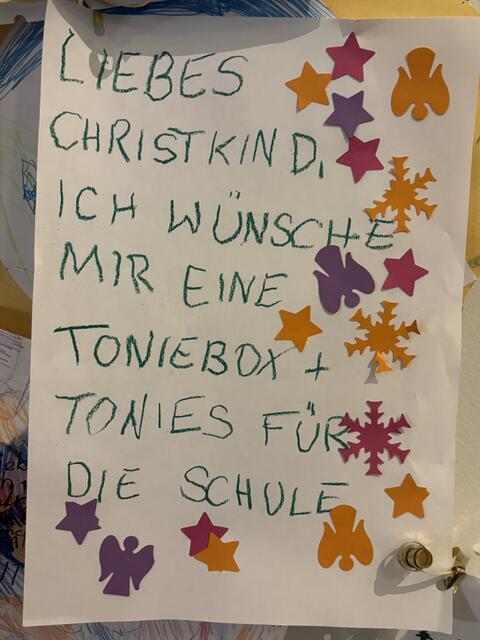 LIEBES
CHRISTKIND,
ICH WÜNSCHE
MIR EINE
TONIEBOX +
TONIES FÜR
DIE SCHULE